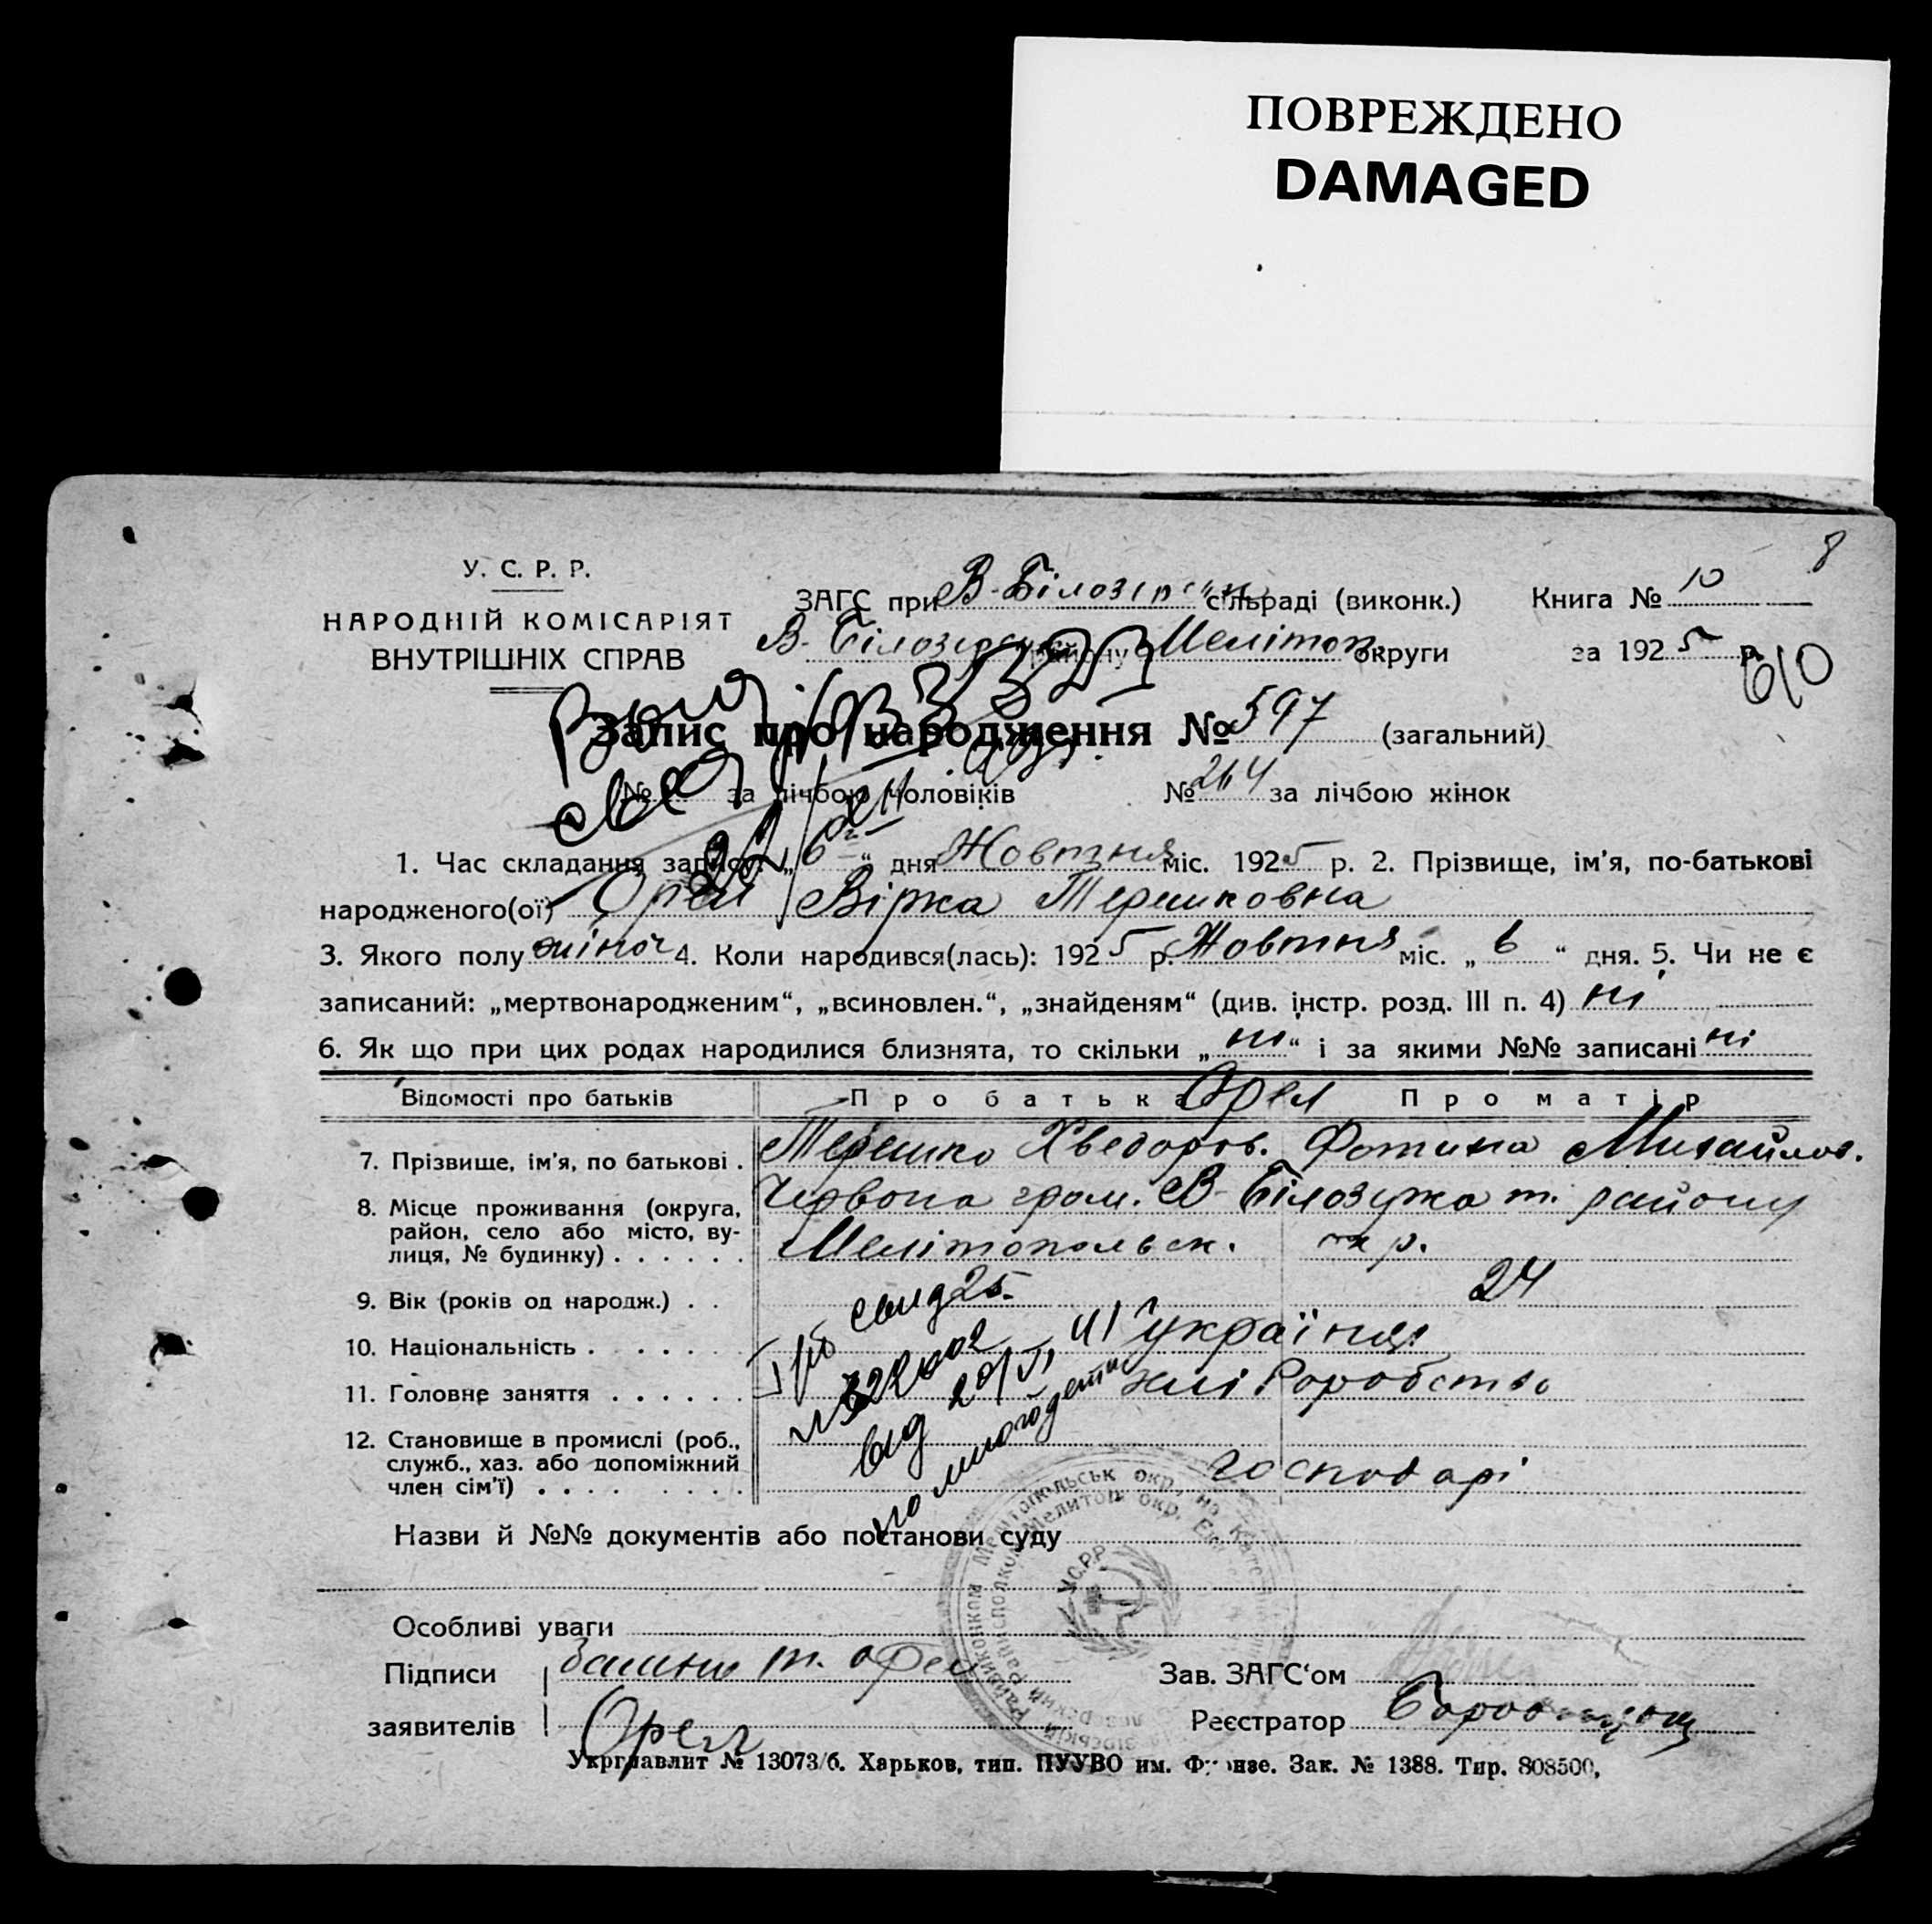 ПОВРЕЖДЕНО
DAMAGED
8
У. С. Р. Р.
НАРОДНІЙ КОМІСАРІЯТ
ВНУТРІШНІХ СПРАВ
ЗАГС при В-Білозірськ сільраді (виконк.) Книга № 10
В-Білозірськ району Мелітоп. округи за 1925 р.
610
Запис про народження № 597 (загальний)
№ за лічбою чоловіків № 264 за лічбою жінок
1. Час складання запису: „6“ дня Жовтня міс. 1925 р. 2. Прізвище, ім’я, по-батькові
народженого(ої) Орел Вірка Терешковна
3. Якого полу жіноч 4. Коли народився(лась): 1925 р. Жовтня міс. „6“ дня. 5. Чи не є
записаний: „мертвонародженим“, „всиновлен.“, „знайденям“ (див. інстр. розд. III п. 4) ні
6. Як що при цих родах народилися близнята, то скільки „ні“ і за якими №№ записані ні
Відомості про батьків Про батька Орел Про матір
7. Прізвище, ім’я, по батькові . Терешко Хведоров. Фотина Михайлов.
8. Місце проживання (округа, Червона гром. В-Білозірка т. району
район, село або місто, ву-
лиця, № будинку) . . . . . . Мелітопольск. окр.
9. Вік (років од народж.) . . 25. 24
10. Національність . . . . . . українці
11. Головне заняття . . . . . . хліборобство
12. Становище в промислі (роб.,
служб., хаз. або допоміжний
член сім’ї) . . . . господарі
Назви й №№ документів або постанови суду
У.С.Р.Р.
Особливі уваги
Підписи т. орел Зав. ЗАГС‘ом
заявителів Орел Реєстратор
Укрглавлит № 13073/б. Харьков, тип. ПУУВО им. Фрунзе. Зак. № 1388. Тир. 808500,